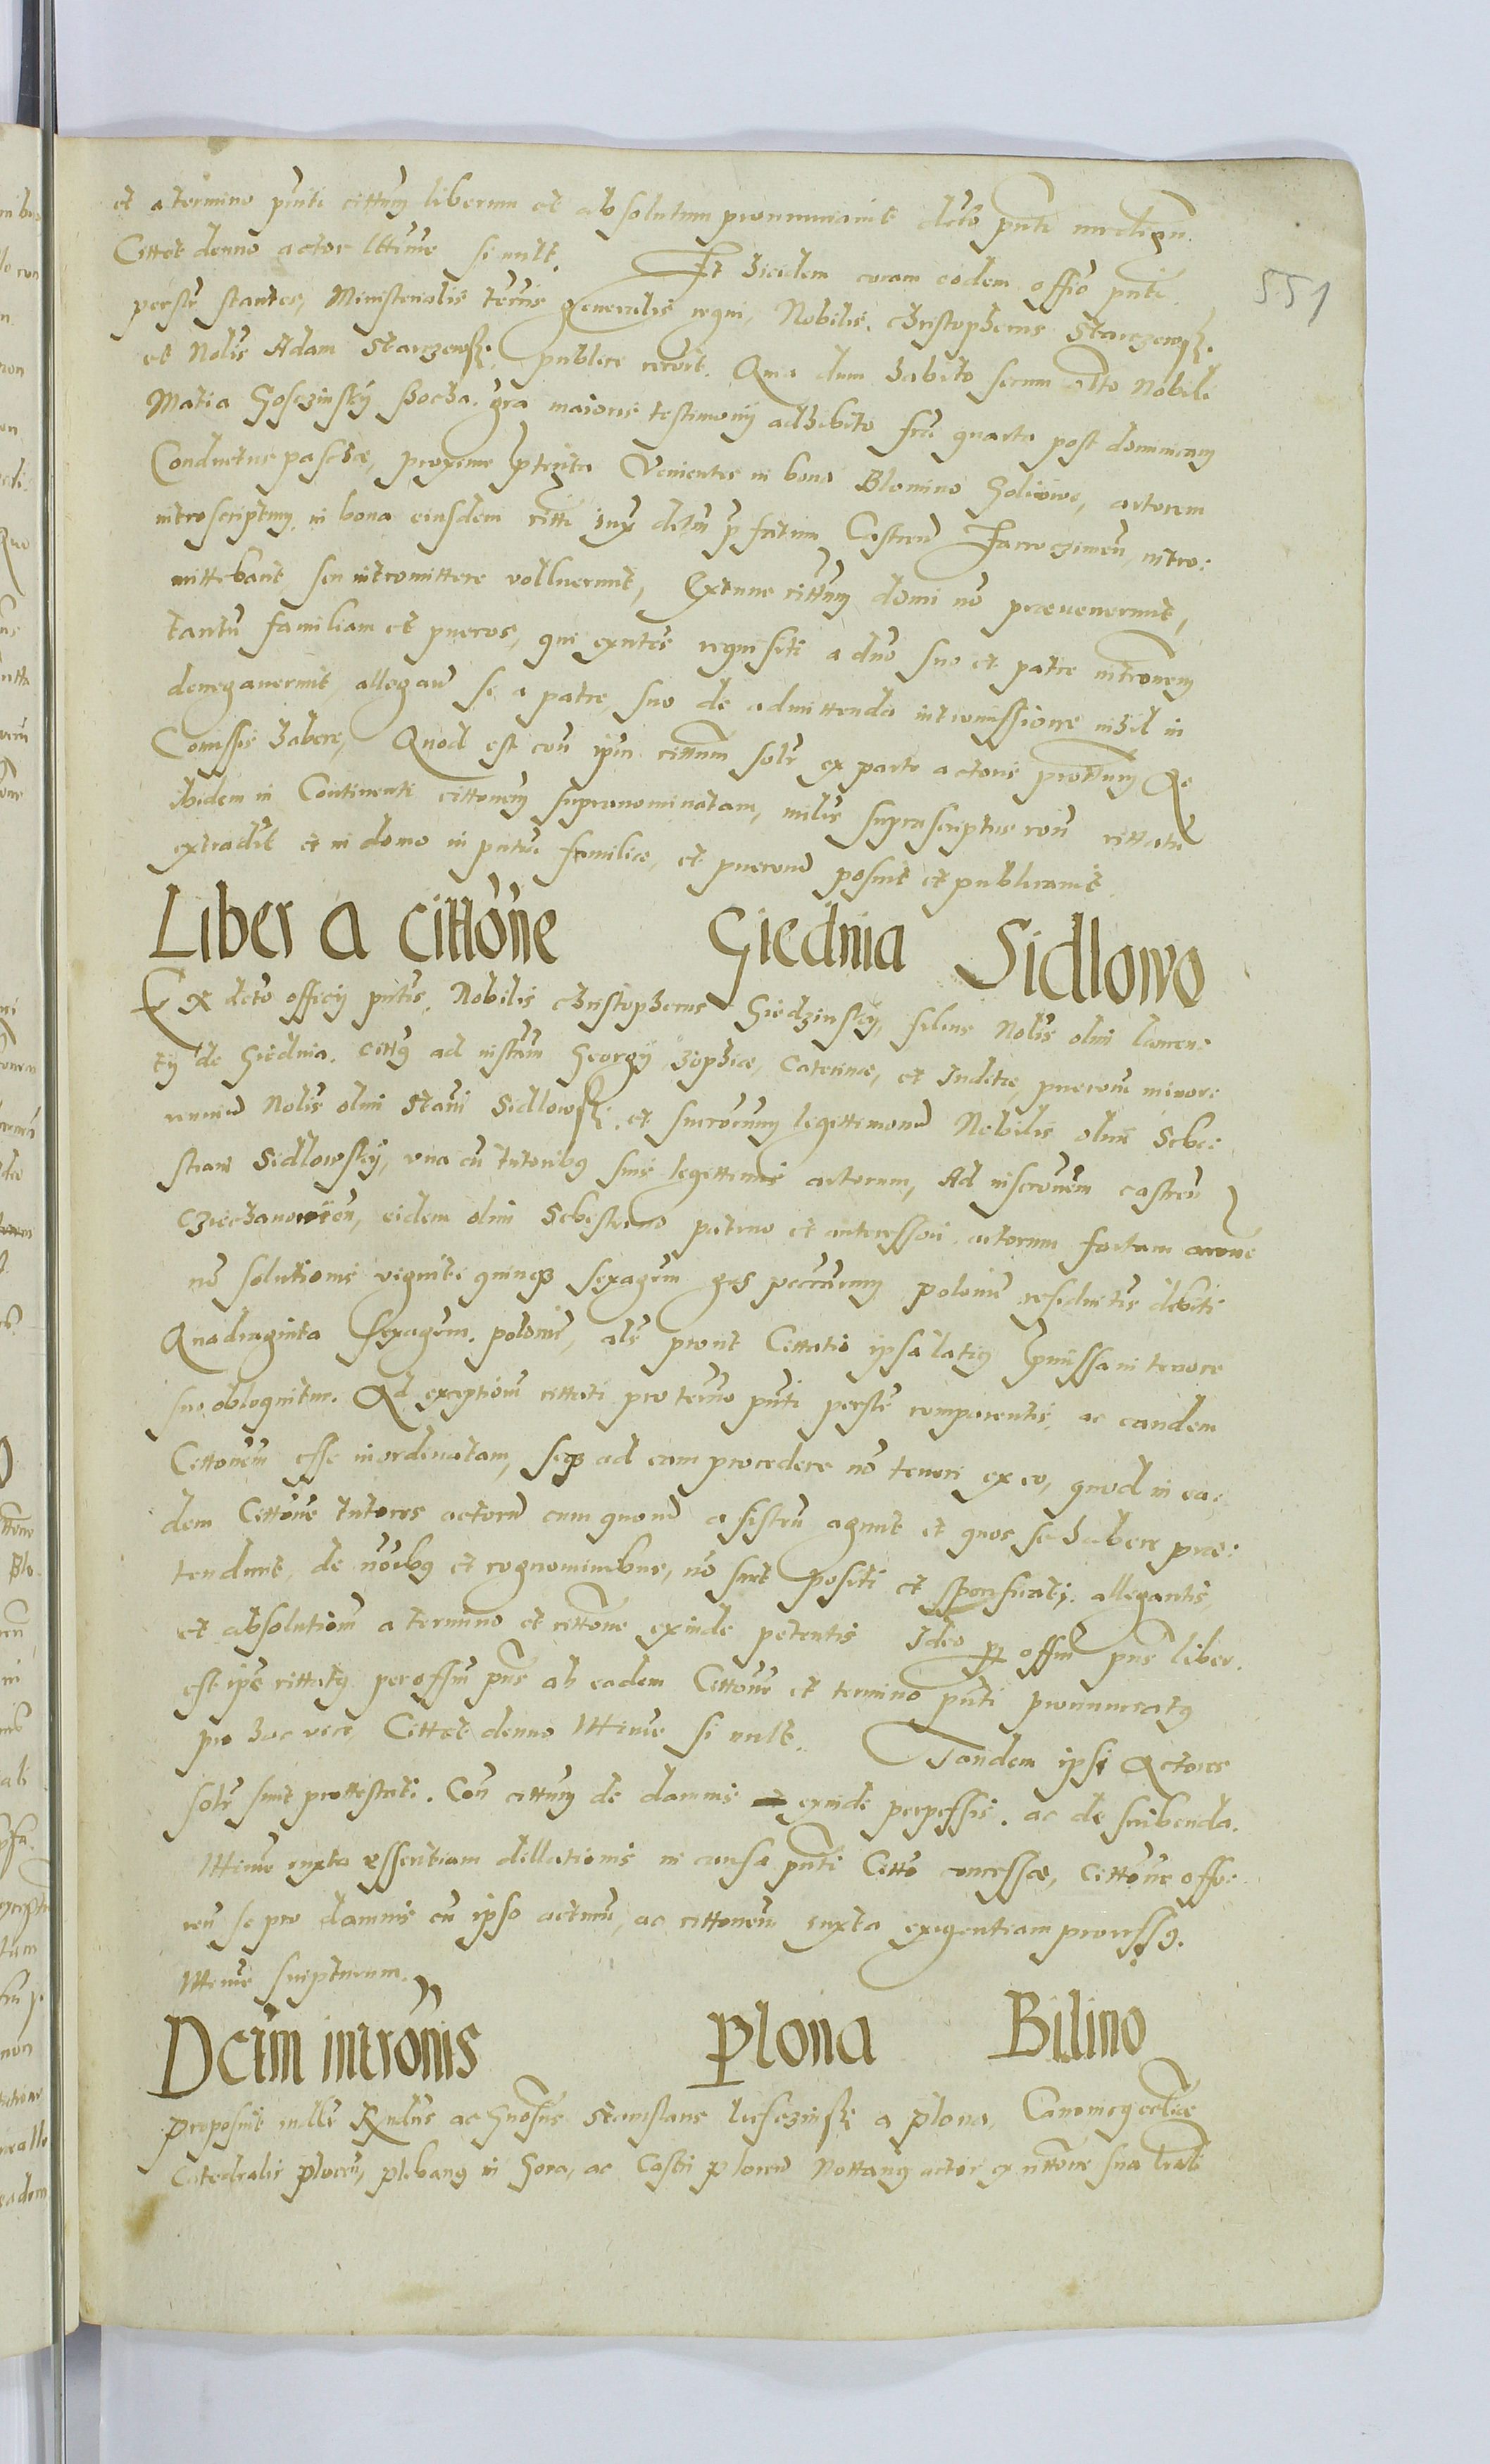 et a termino pnti cittum liberum et absolutum pronunciavit deto pnti mediante
Cittet denuo actor lttime si vult. Et ibidem coram eodem offio pnti
551
perslr stantes, Ministerialis terris generalis regni, Nobilis Christopherus Starczewsky
et Nolis Adam Starczewsky publice recoit. Quia dum habito secum alto Nobili
Matia Gosczinsky gra maioris testimonij adhibito fria quarta post dominicam
Conductus paschae, proxime pterita Venientes in bona Blomino Goliowo, actorem
introscriptum in bona eiusdem citti iux detum pfatum Castren Zacroczimen, intro:
mittebant, seu intromittere volluerunt, Extunc cittum domi no praevenerunt,
tantu familiam et pueros, qui exntes requisiti a dno suo et patre intronem
denegaverunt, allegan se a patre suo de admittenda intromissione nihil in
Comissis habere, Quod est con ipm cittum solr ex parte actoris prottum Qe
ibidem in Continenti cittonem supranominatam, milis suprascriptus con cittatu
extradit et in domo in pntia familiae, et puerorum posuit et publicavit.
Liber a cittone Giednia Sidlowo
Ex deto officij pntis, Nobilis Christopherus Giedzinsky, filius Nolis olim Lauren:
tij de Giednia cittus ad instam Georgij Zophiae, Caterinae, et Iudetae, puerorum minor:
rennium Nolis olim Stani Sidlowsky et successorum legittimorum Nobilis olim Seba:
stiani Sidlowsky, una cu tutoribus suis legittimis actorum, Ad inscronem castren
Cziechanowien, eidem olim Sebastiano patruo et antecessori actorum factam
no solutionis viginti quinque sexagen grs peccuniarum polonium residuitatis debiti
Quadraginta sexagen. polonic, als prout Cittatio ipsa latius pmissa in tenore
suo obloquitur. Ad exceptionem cittati pro termo pnti perslr comparentis, ac eandem
Cittonem esse inordinatam, seque ad eam procedere no teneri ex eo, quod in ea:
dem Cittone tutores actorum cum quorum asistentia agunt et quos se habere prae:
tendunt, de noibus et cognominibus, no sunt positi et specificati, allegantis
et absolutionem a termino et cittone exinde petentis Ideo per offm pns liber
est ipse cittatus per offm pns ab eadem Cittone et termino pnti pronunciatus
pro hac vice, Cittet denuo lttime si vult. Tandem ipsi Actores
solr sunt prottestati. Con cittum de damnis exinde perpessis, ac de scribenda
lttime iuxta essentiam dillationis in causa pnti Citto concessae, Cittone offe:
ren se pro damnis cu ipso acturum, ac cittonem iuxta exigentiam processus
lttime scripturum.
Dctm intronis Plona Bilino
Proposuit in Rndus ac Gnosus Stanislaus a Plona, Canonicus ecclae
Catedralis Plocen, plebanus in Gora, ac Castri Plocen Nottarius actor ex cittone sua